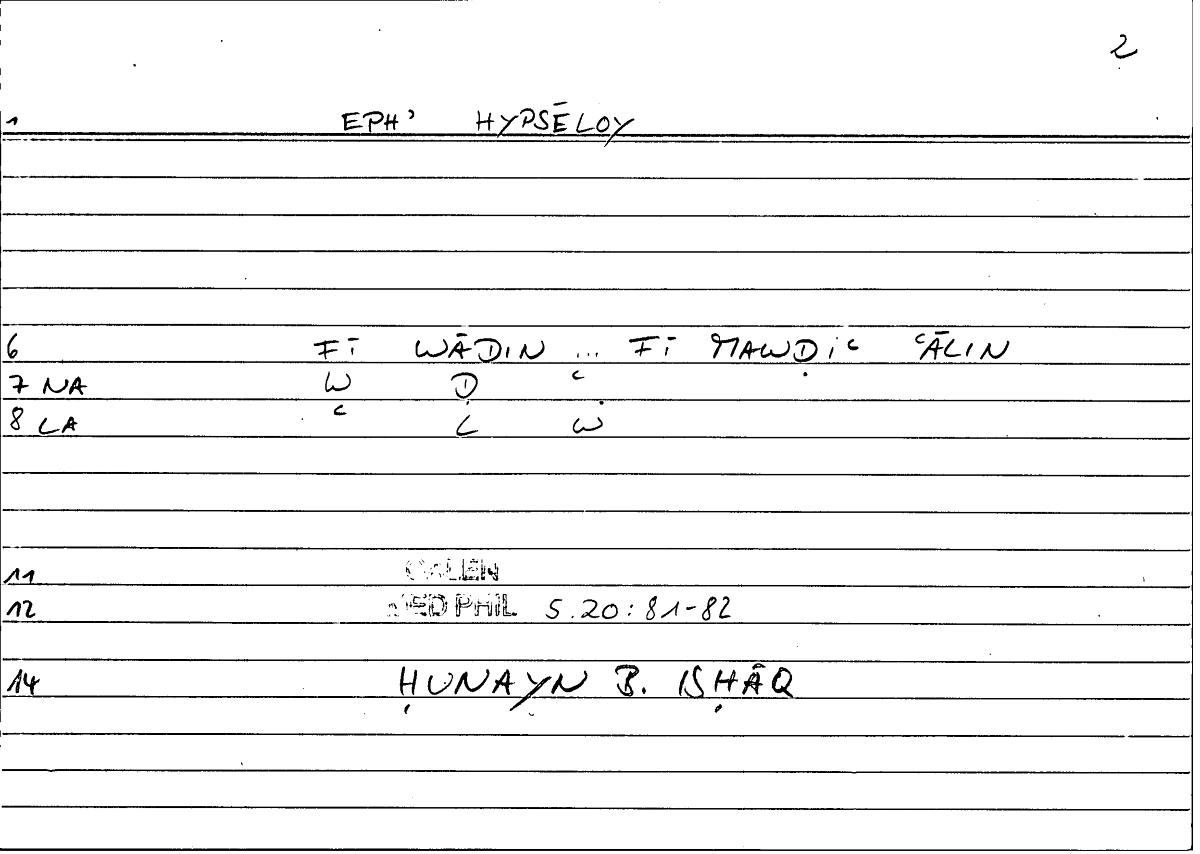 2
1 EPH' HYPSĒLOY
6 FĪ WĀDIN ... FĪ MAWḌIʿ ʿĀLIN
7 NA W Ḍ ʿ
8 LA ʿ L W
11 GALEN
12 MED PHIL 5.20:81-82
14 ḤUNAYN B. ISḤĀQ